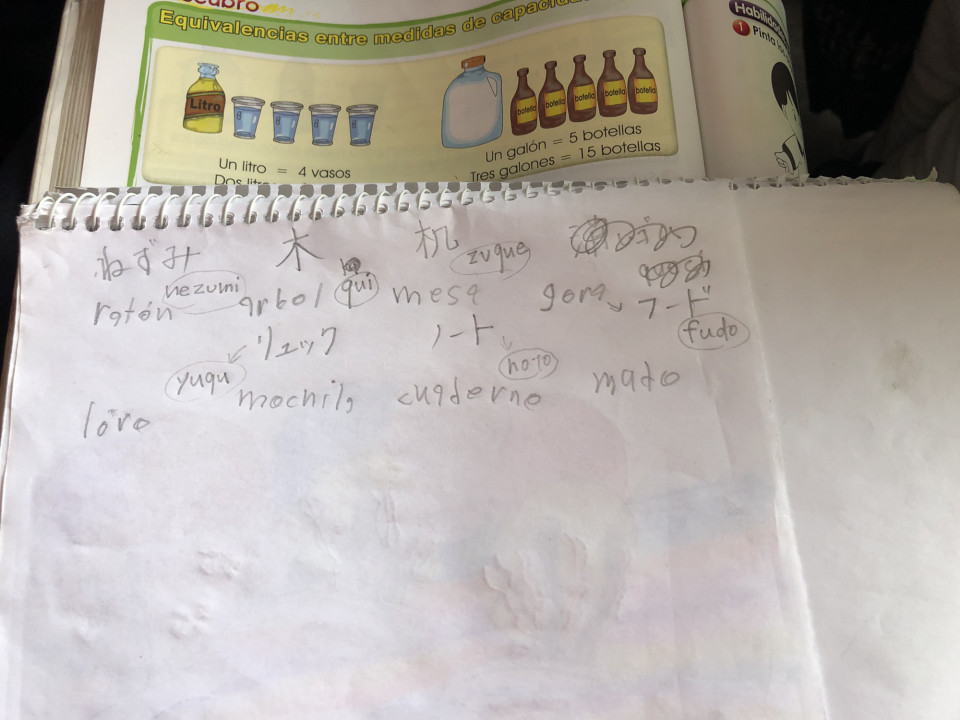 Equivalencias entre medidas de
Habilid
1 Pinta
Litro
botella botella botella botella botella
Un litro = 4 vasos
Un galón = 5 botellas
Dos
Tres galones = 15 botellas
ねずみ 木 机 zuque
nezumi qui
ratón arbol mesa gora フード
fudo
リュック ノート
yuqu noto
mochila cuaderno mato
loro